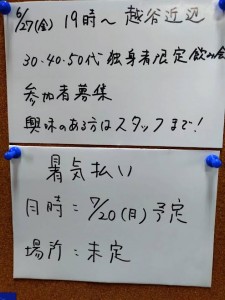 6/27(金) 19時～越谷近辺
30.40.50代独身者限定飲み会
参加者募集
興味のある方はスタッフまで!
暑気払い
日時：7/20(日)予定
場所：未定